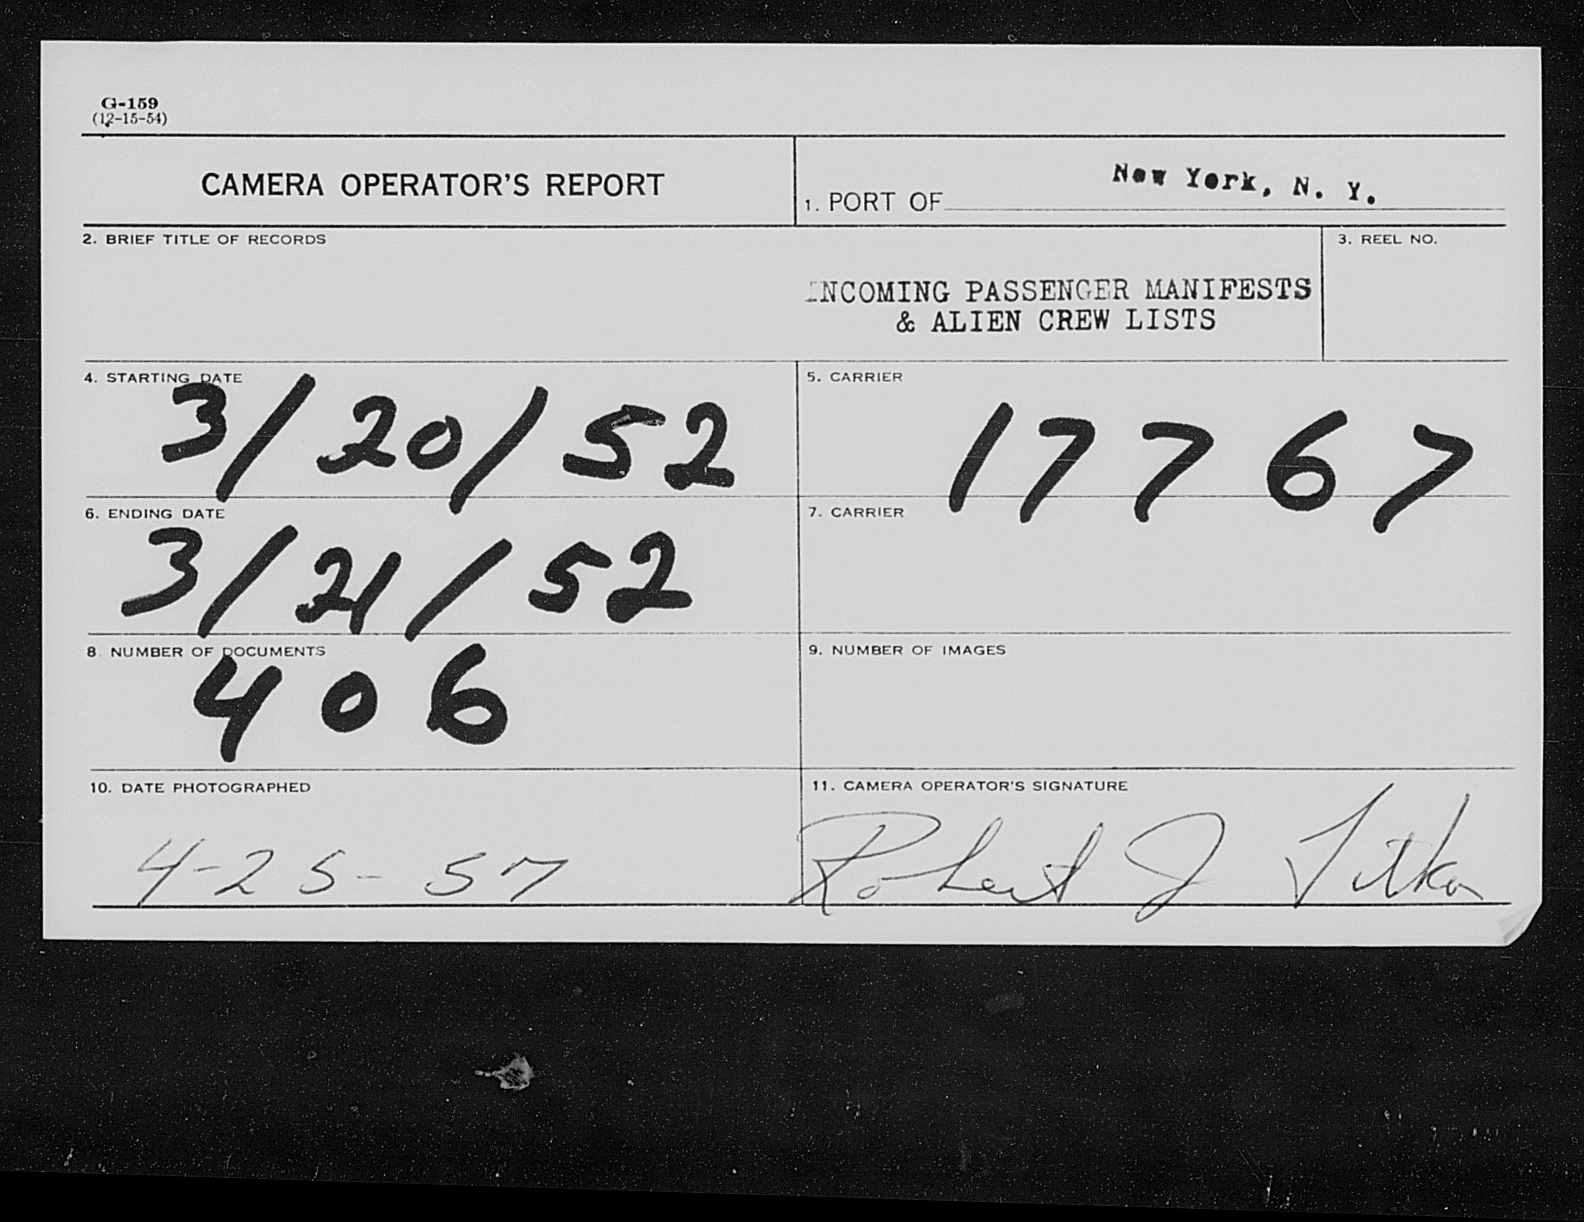 G-159
(12-15-54)
CAMERA OPERATOR'S REPORT
1. PORT OF New York, N. Y.
2. BRIEF TITLE OF RECORDS
INCOMING PASSENGER MANIFESTS
& ALIEN CREW LISTS
3. REEL NO.
4. STARTING DATE
3/20/52
5. CARRIER
17767
6. ENDING DATE
3/21/52
7. CARRIER
8. NUMBER OF DOCUMENTS
406
9. NUMBER OF IMAGES
10. DATE PHOTOGRAPHED
4-25-57
11. CAMERA OPERATOR'S SIGNATURE
Robert J